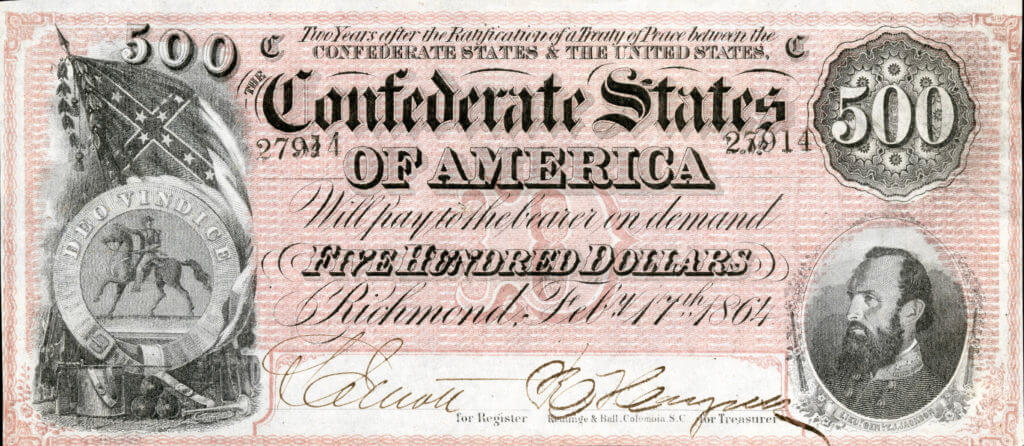 500
C
Two Years after the Ratification of a Treaty of Peace between the
CONFEDERATE STATES & THE UNITED STATES,
C
THE
Confederate States
500
27914
27914
OF AMERICA
DEO VINDICE
Will pay to the bearer on demand
FIVE HUNDRED DOLLARS
Richmond, Feby. 17th 1864
for Register
Keatinge & Ball, Columbia, S.C.
for Treasurer
LIEUT. GEN'L T.J. JACKSON